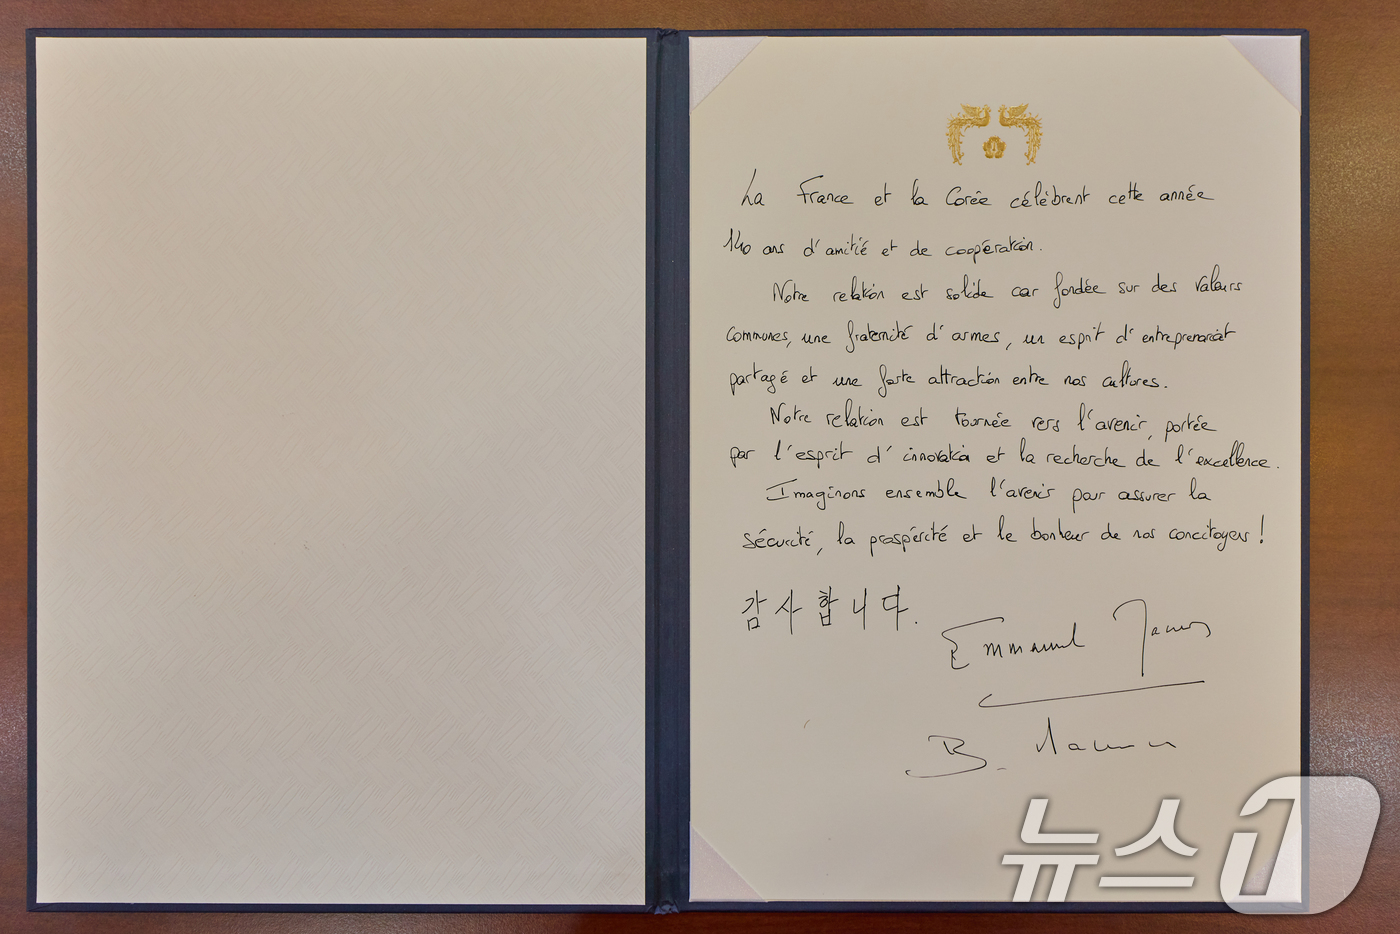 La France et la Corée célèbrent cette année
140 ans d'amitié et de coopération.
Notre relation est solide car fondée sur des valeurs
communes, une fraternité d'armes, un esprit d'entreprenariat
partagé et une forte attraction entre nos cultures.
Notre relation est tournée vers l'avenir, portée
par l'esprit d'innovation et la recherche de l'excellence.
Imaginons ensemble l'avenir pour assurer la
sécurité, la prospérité et le bonheur de nos concitoyens !
감사합니다.
Emmanuel Macron
B. Macron
뉴스1